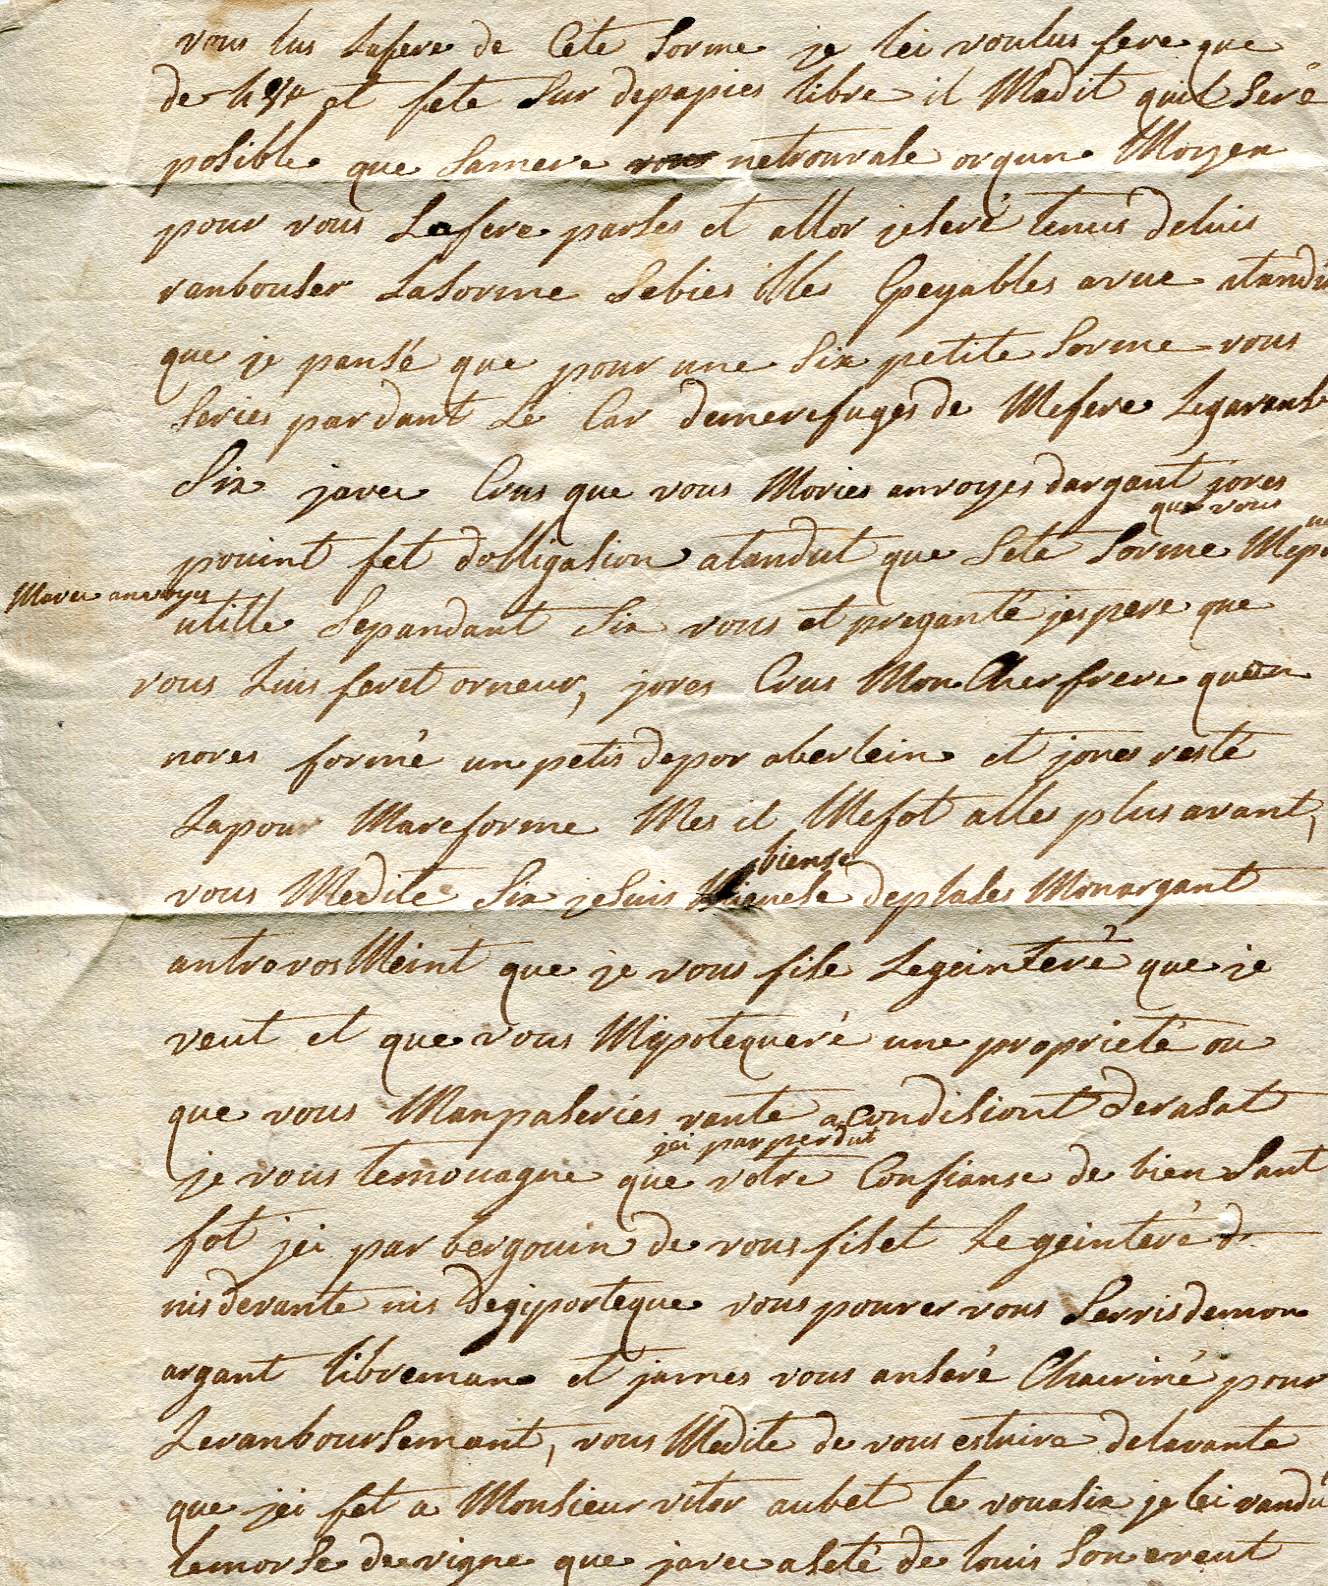 vous lus lafere de Cete Sorme je lei voulus fere que
de et fete sur depapies libre il Madit quil Seré
posible que Samere netrouvale orqun Moyen
pour vous Lafere parses et allor jeseré tenus deluis
ranbouser LaSorme Sebies illes peyables avue atandu
que je pansé que pour une Six petite Sorme vous
Series pardant Le Car demerefuges de Mefere Legarand
Six javec Crus que vous Mories anvoyes dargant jores
que vous
pouint fet dobligasion atandut que Sete Sorme
Mavec anvoyes
utille Sepandant Six vous et preganté jespere que
vous Luis feret orneur, jores Crus Mon Cher frere quan
nores formé un petis depor aberlein et jores resté
Lapour Mareforme Mes il Mefot alles plus avant,
biense
vous Medite Six jesuis deplases Monargant
antrevos Meint que je vous fise Legeinteré que je
veut et que vous Mypotequeré une proprieté ou
que vous Manpaseries vante acondisiont derasat
jei par perdut
je vous temouagne que votre Confianse de bien Sant
fot jei par bergouin de vous fiset Legeinteré de
nis devante nis degiporteque vous pourer vous Servis demon
argant libreman et james vous anseré Chacriné pour
Leranboursemant, vous Medite de vous estruire delavante
que jei fet a Monsieur vitor aubet le vouasix je lei vandu
lemorse de vigne que javec aseté de louis Son